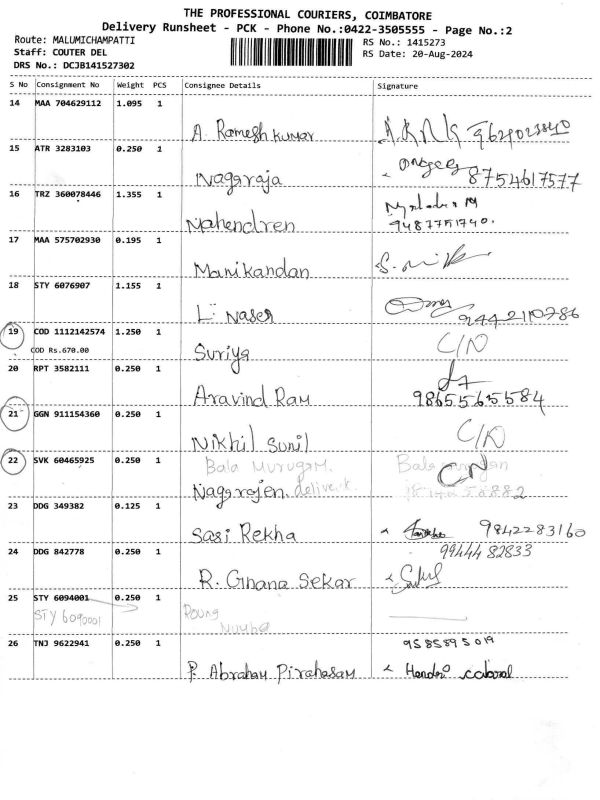 THE PROFESSIONAL COURIERS, COIMBATORE
Delivery Runsheet - PCK - Phone No.:0422-3505555 - Page No.:2
Route: MALUMICHAMPATTI
RS No.: 1415273
Staff: COUTER DEL
RS Date: 20-Aug-2024
DRS No.: DCJB141527302
S No Consignment No Weight PCS Consignee Details Signature
14 MAA 704629112 1.095 1
A. Ramesh kumar
15 ATR 3283103 0.250 1
Nagaraja 8754617577
16 TRZ 360078446 1.355 1
Mahendren 9487751740.
17 MAA 575702930 0.195 1
Manikandan
18 STY 6076907 1.155 1
L. Naser 9442110786
19 COD 1112142574 1.250 1
COD Rs.670.00
Suriya C/N
20 RPT 3582111 0.250 1
Aravind Ram 9865565584
21 GGN 911154360 0.250 1
Nikhil Sunil C/N
22 SVK 60465925 0.250 1
Bala Murugan. Bala
Nagarajen. CN
23 DDG 349382 0.125 1
Sasi Rekha 9842283160
24 DDG 842778 0.250 1
9944482833
R. Ghana Sekar
25 STY 6094001 0.250 1
STY 6090001
26 TNJ 9622941 0.250 1
9585895019
P. Abraham Pirahasam